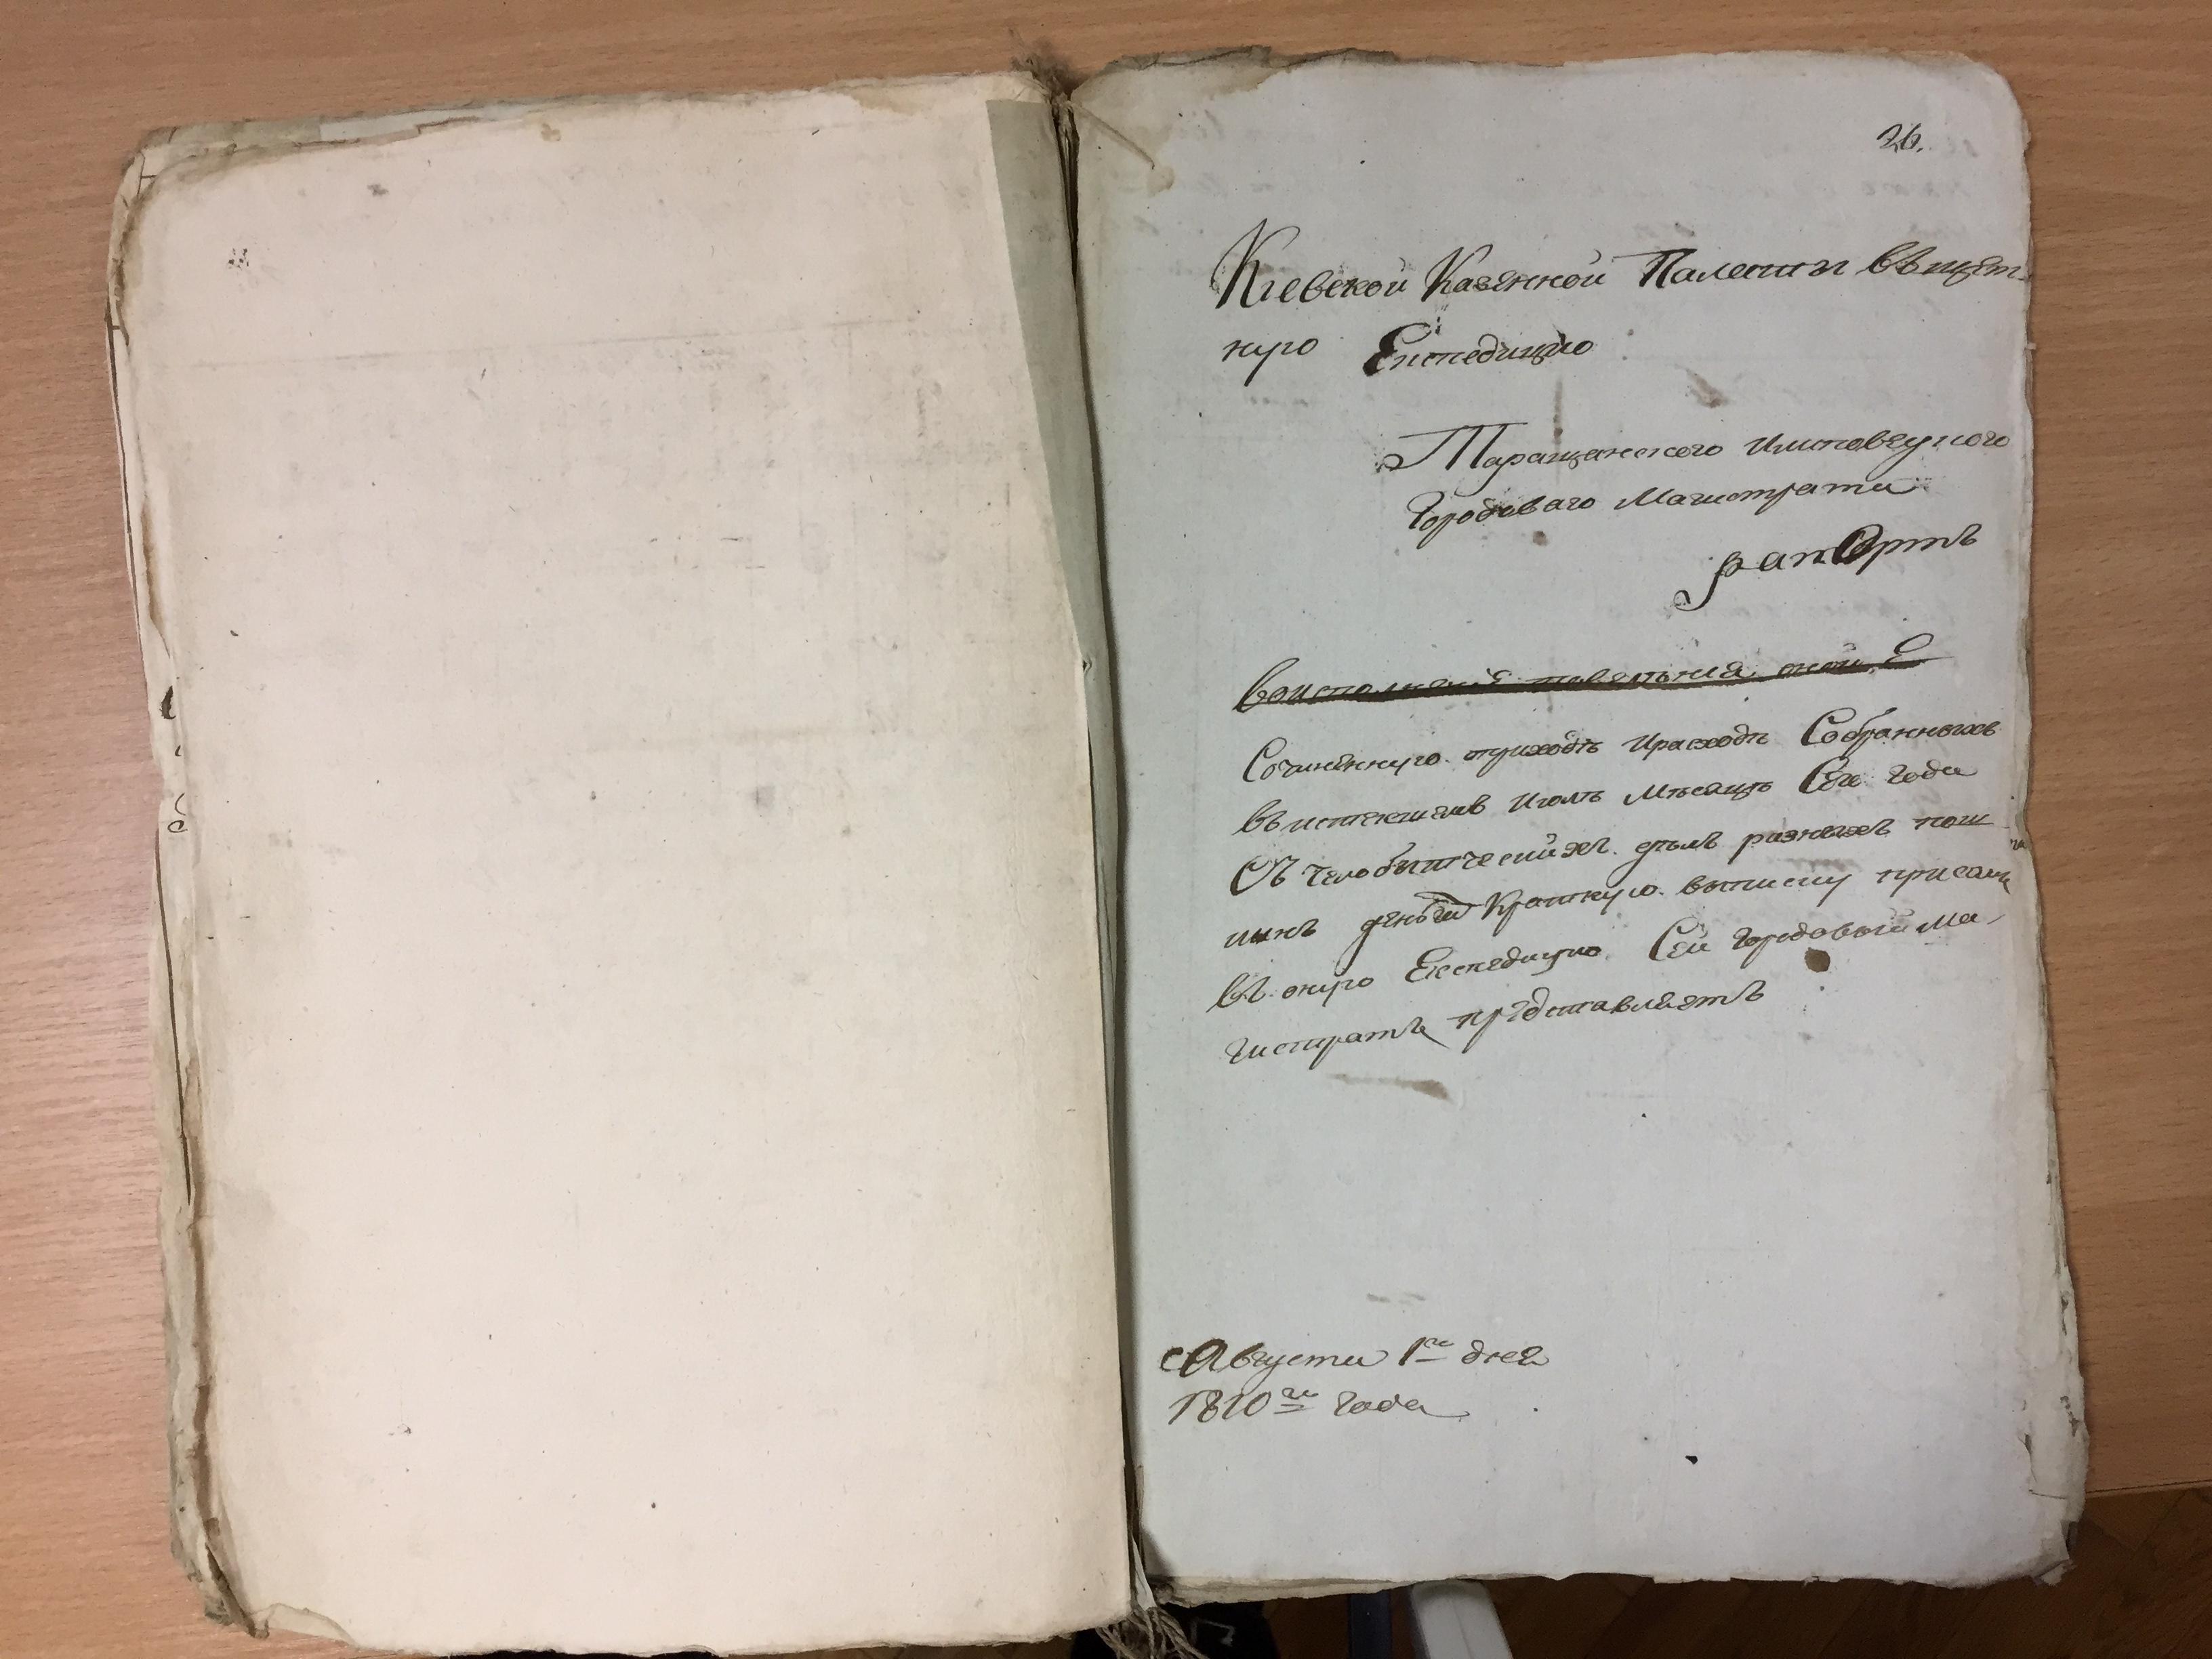 26.
Кіевской Казенной Палаты въ щет-
ную Експедицию
Таращанского
Городоваго Магистрата
рапортъ
Воисполнение повелѣния оной Е
Сочиненную приходъ ирасходъ Собранныхъ
въ истекшемъ июлѣ Мѣсяцѣ Сего года
Съ челобытческихъ дѣлъ разныхъ пош
линъ денегъ краткую выписку при семъ
въ оную Експедицию Сей городовый ма
гистратъ представляетъ
Августа 1го дня
1810го года